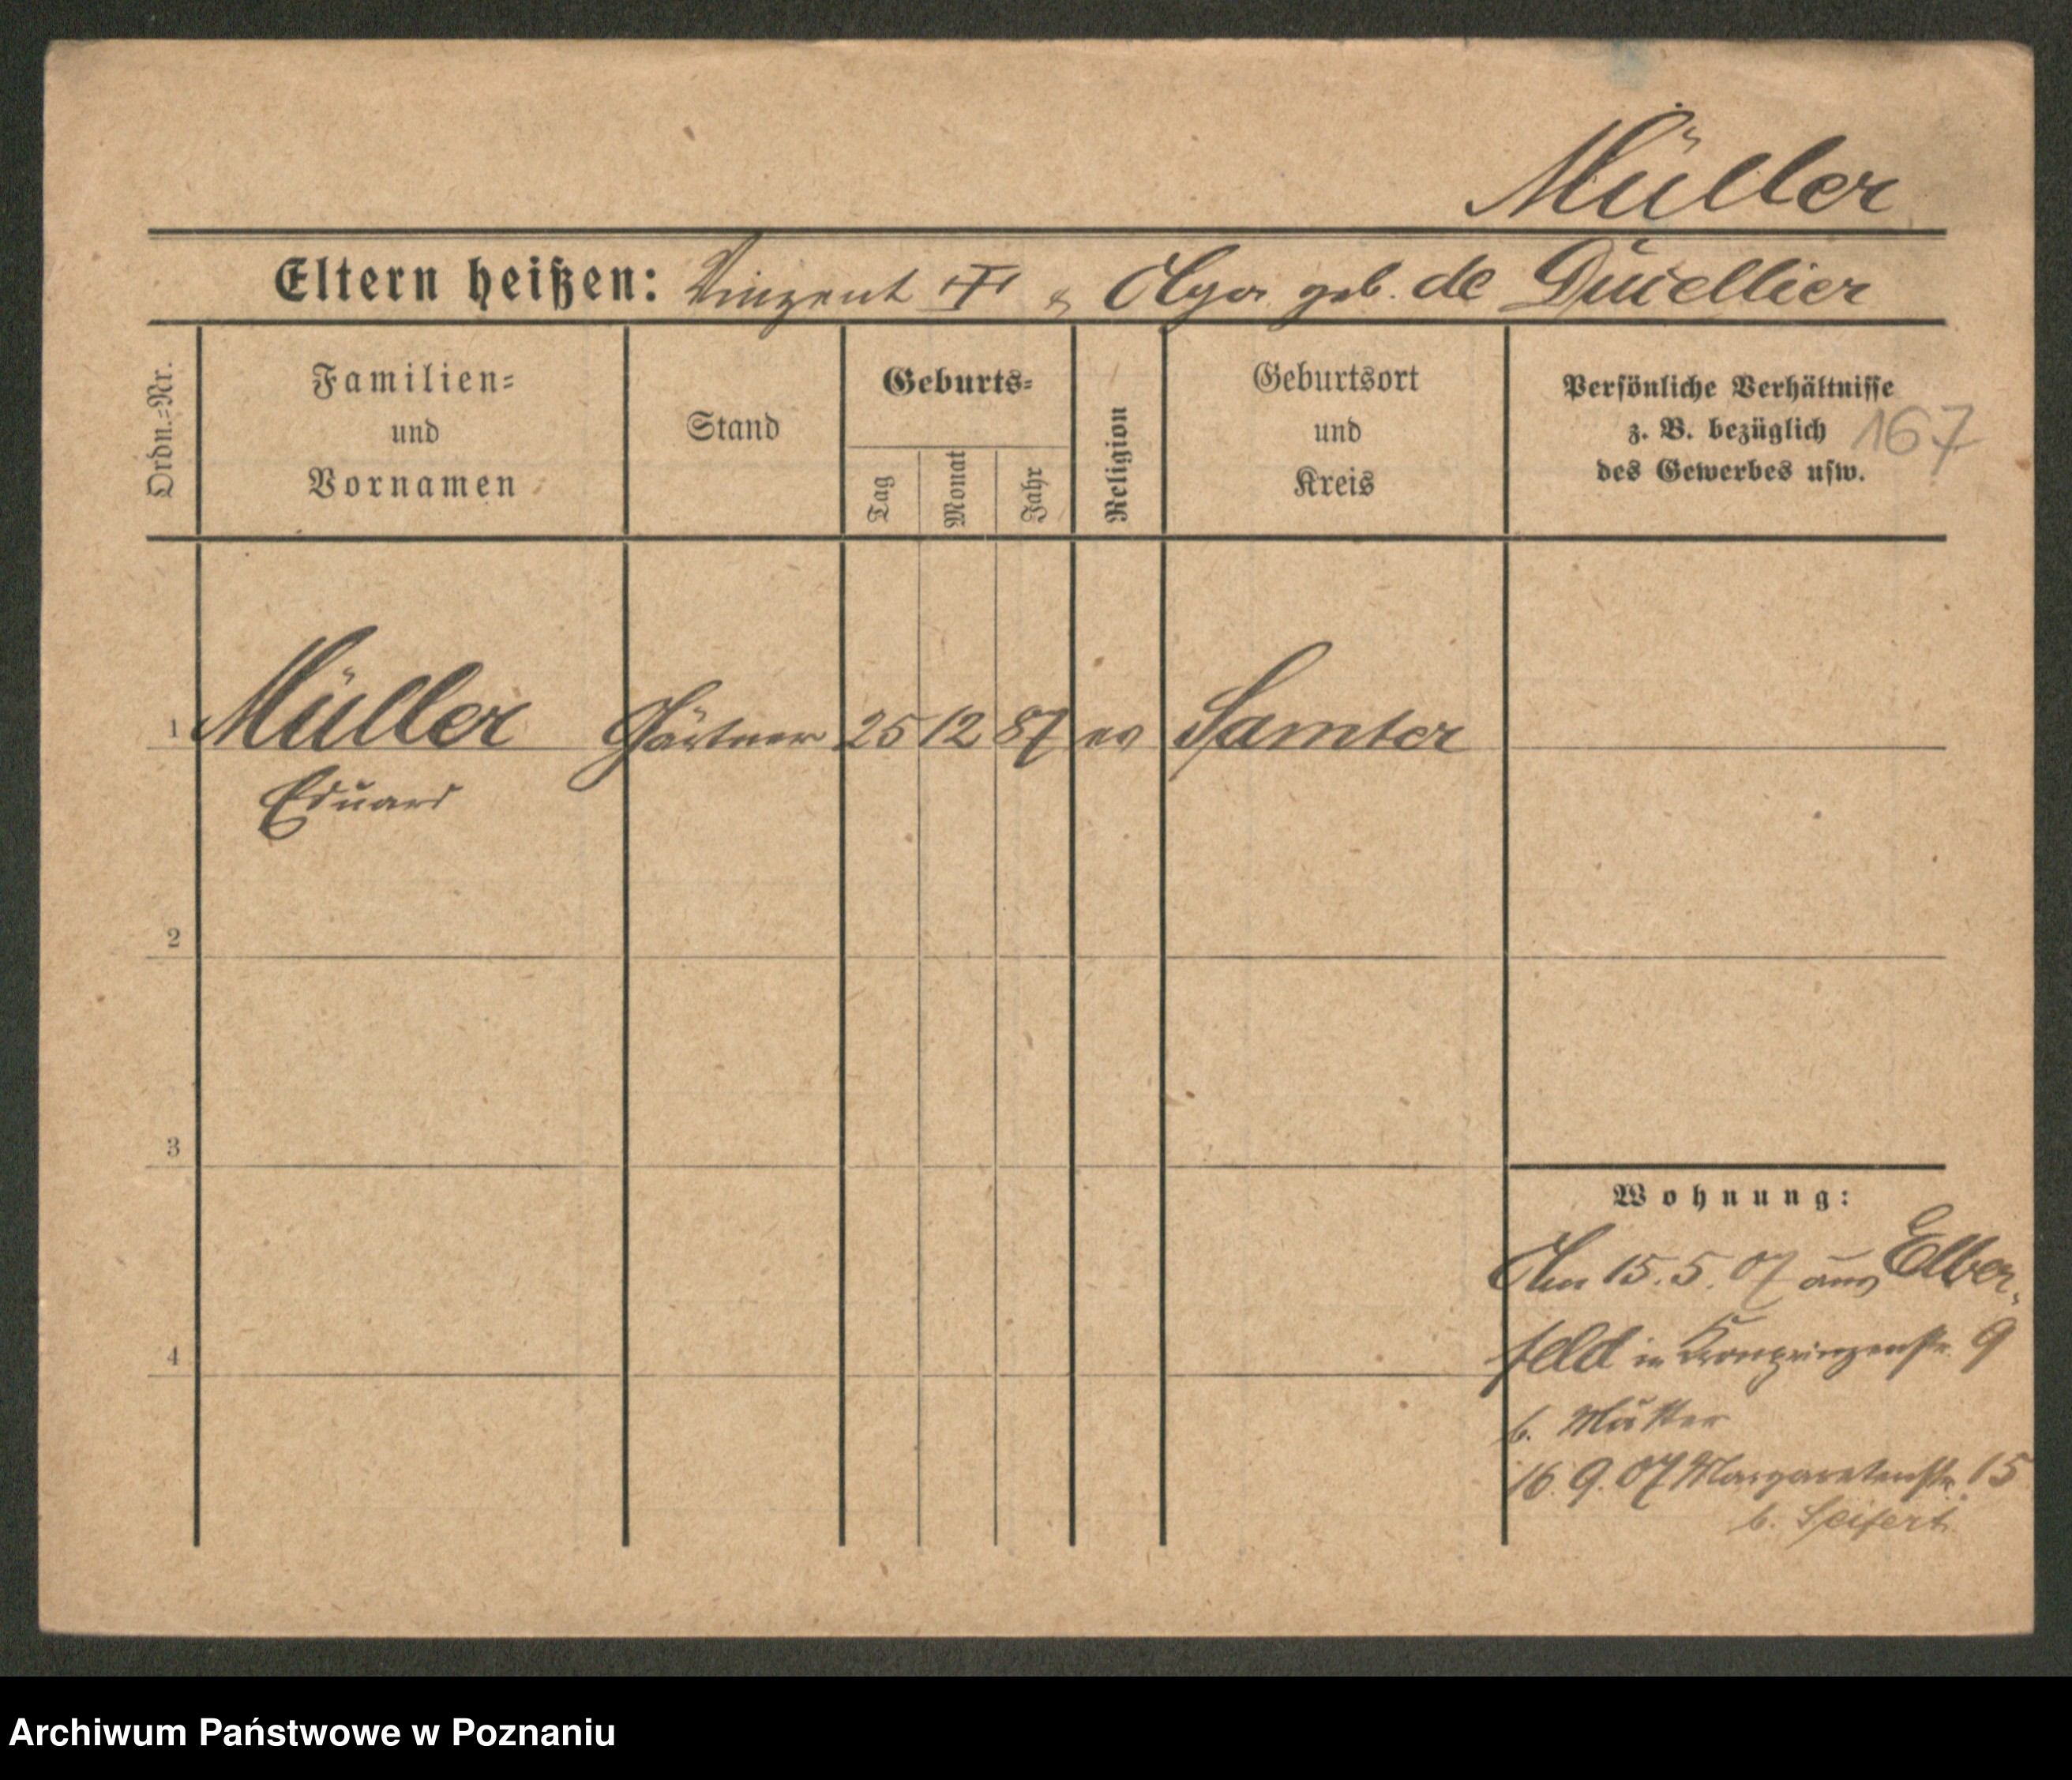 Müller
Eltern heißen: Vinzent † & Olga geb. de Ducellier
Ordn.=Nr.
Familien=
und
Vornamen
Stand
Geburts=
Tag
Monat
Jahr
Religion
Geburtsort
und
Kreis
Persönliche Verhältnisse
z. B. bezüglich
des Gewerbes usw.
167
1 Müller Gärtner 25 12 87 ev Samter
Eduard
2
3
4
Wohnung:
Am 15.5.07 aus Elber-
feld in Kronprinzenstr. 9
b. Mutter
16.9.07 Margaretenstr. 15
b. Seifert
Archiwum Państwowe w Poznaniu